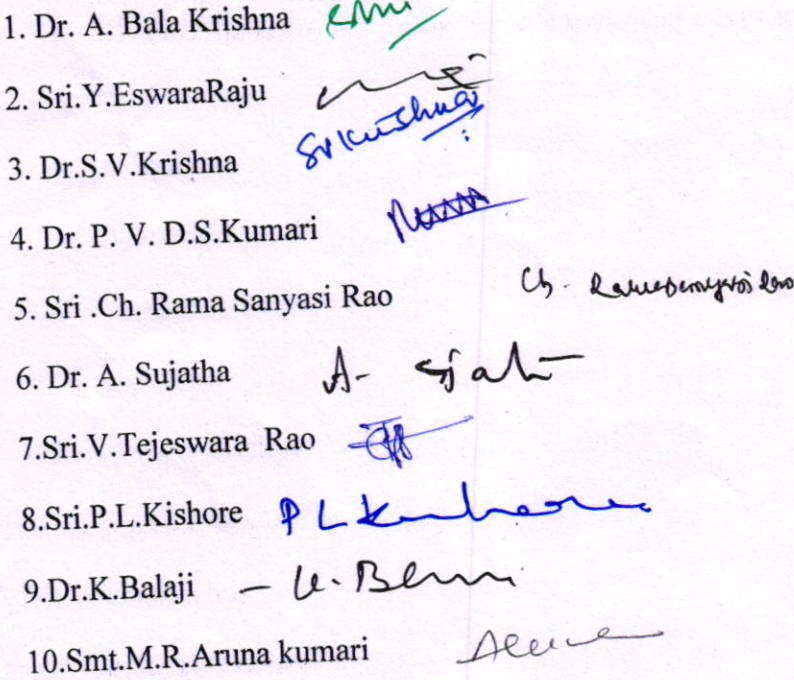 1. Dr. A. Bala Krishna
2. Sri.Y.EswaraRaju
3. Dr.S.V.Krishna SvKrishna
4. Dr. P. V. D.S.Kumari
5. Sri .Ch. Rama Sanyasi Rao Ch.
6. Dr. A. Sujatha A-
7.Sri.V.Tejeswara Rao
8.Sri.P.L.Kishore P L Kishore
9.Dr.K.Balaji - K.
10.Smt.M.R.Aruna kumari